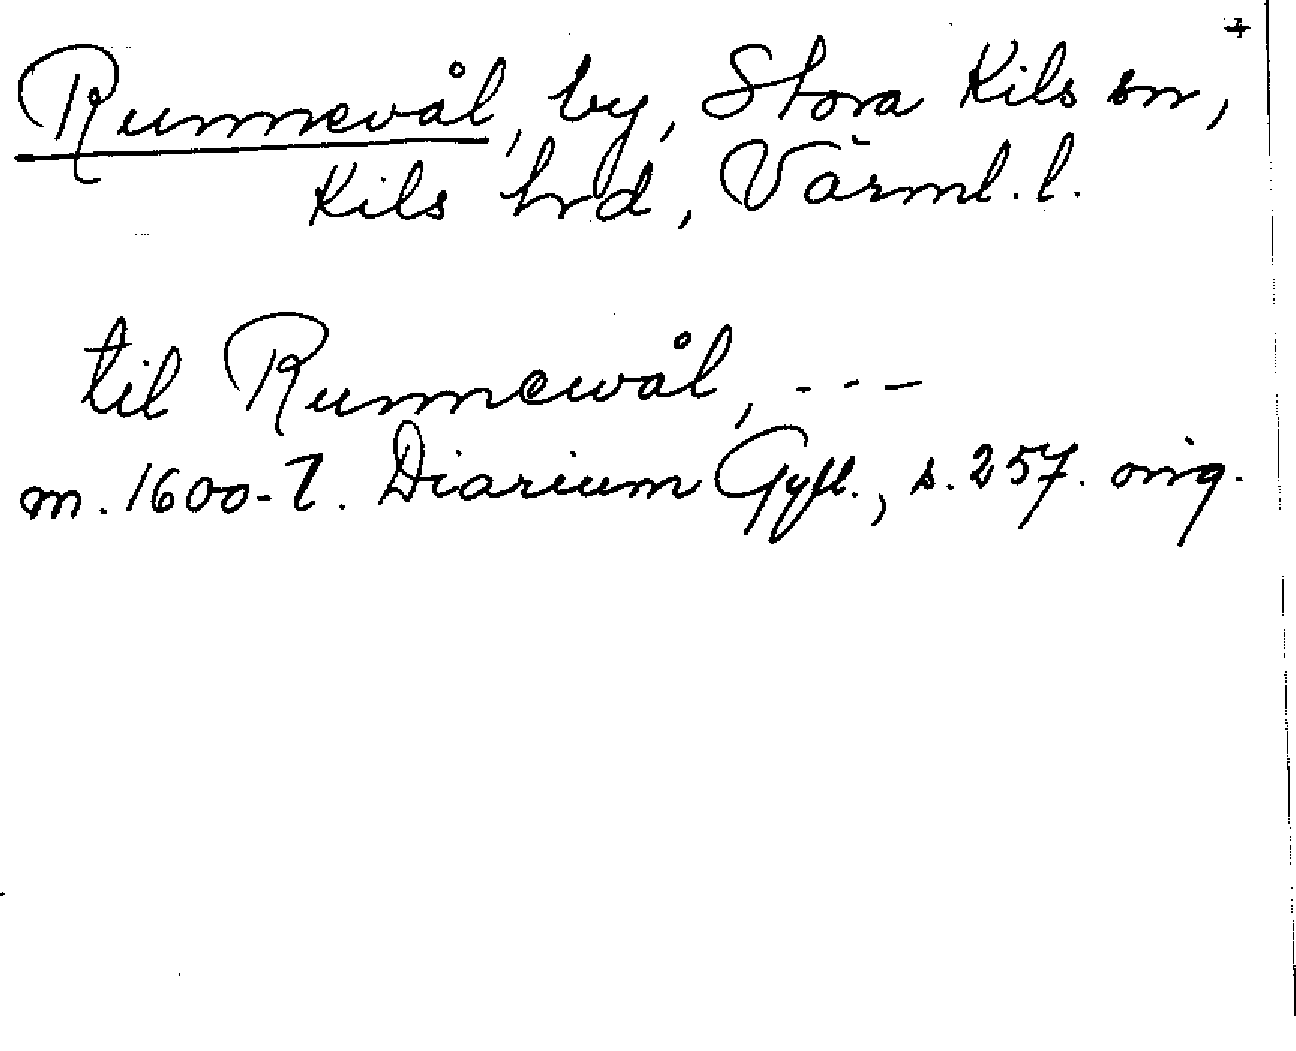 +
Runnevål, by, Stora Kils sn,
Kils hrd, Värml. l.
til Runnewål, - - -
m. 1600-t. Diarium Gyll., s. 257. orig.